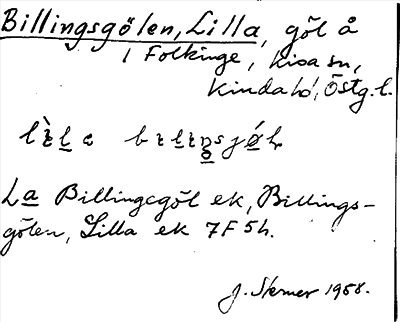 Billingsgölen, Lilla, göl å
1 Folkinge, Kisa sn,
Kinda hd, Östg.l.
La Billingsgöl ek, Billings-
gölen, Lilla ek 7F 5h.
J. Sterner 1958.